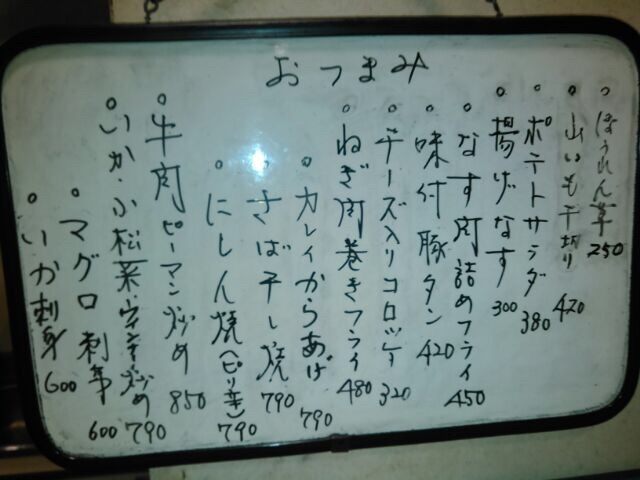 おつまみ
ほうれん草 250
山いも千切り 420
ポテトサラダ 380
揚げなす 300
なす肉詰めフライ 450
味付豚タン 420
チーズ入りコロッケ 320
ねぎ肉巻きフライ 480
カレイからあげ 790
さば干し焼 790
にしん焼(ピリ辛) 790
牛肉ピーマン炒め 850
いか・小松菜・ウインナー炒め 790
マグロ刺身 600
いか刺身 600